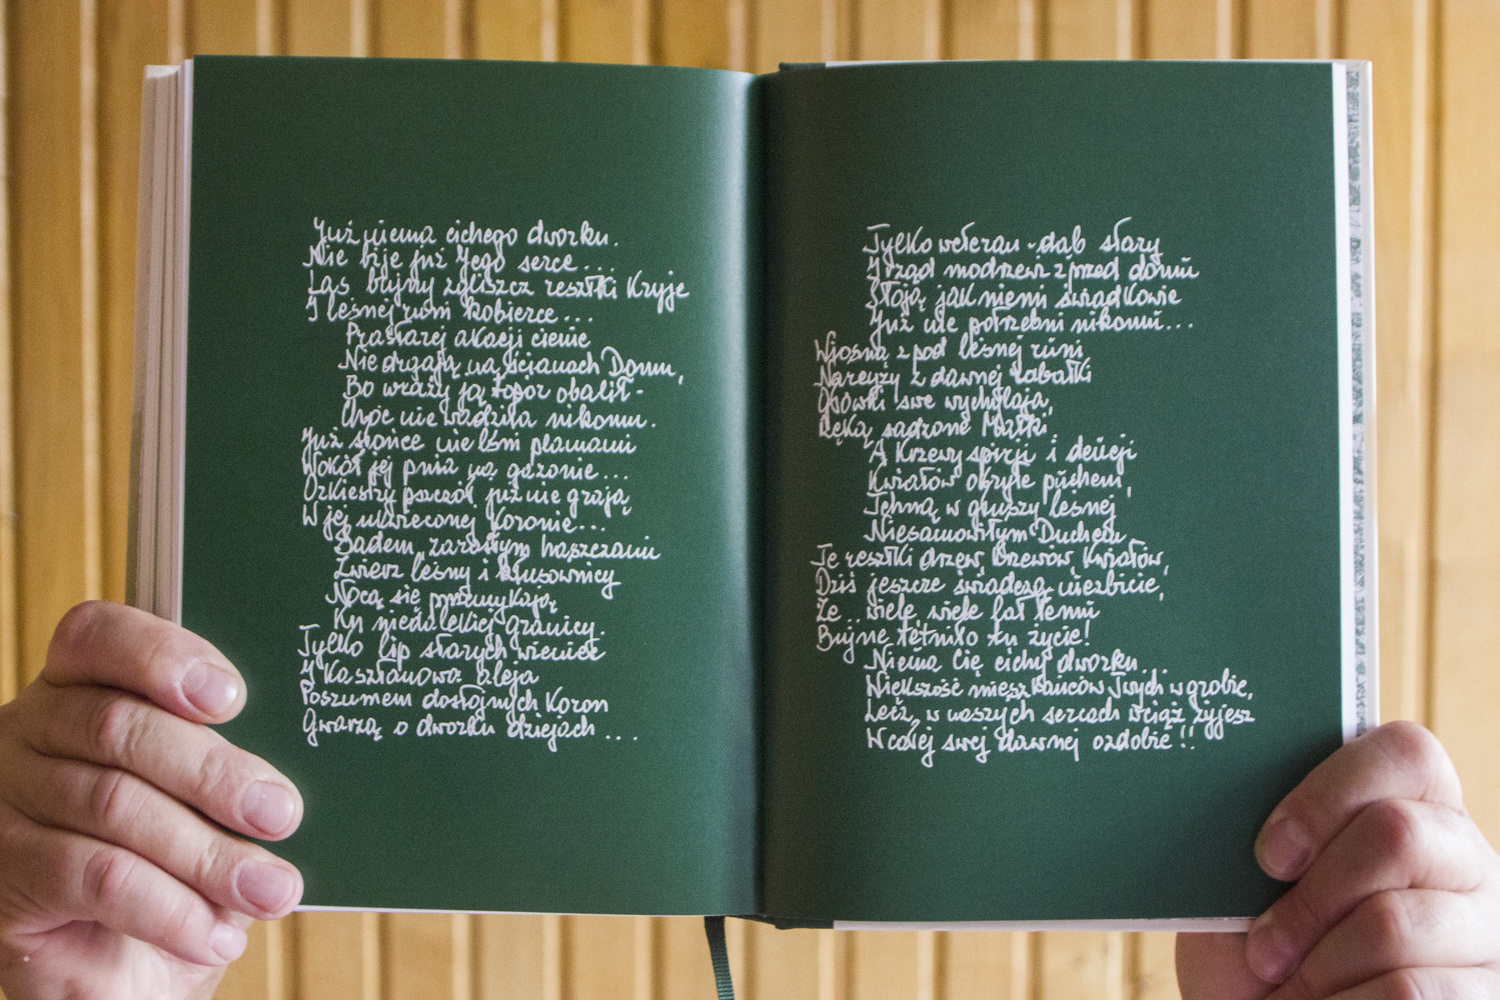 Już niema cichego dworku.
Nie bije już Jego serce...
Las bujny zgliszcz resztki Kryje
I leśnej runi Kobierce...
Prastarej akacji cienie
Nie drgają na ścianach Domu,
Bo wraży ją topór obalił-
Choć nie wadziła nikomu.
Już słońce nie lśni plamami
Wokół jej pnia na gazonie...
Orkiestry pszczół już nie grają
W jej ukwieconej Koronie...
Sadem zarosłym haszczami
Zwierz leśny i Kłusownicy
Nocą się przemykają
Ku niedalekiej granicy.
Tylko lip starych wieniec
I Kasztanowa aleja
Poszumem dostojnych Koron
Gwarzą o dworku dziejach...
Tylko weteran-dąb stary
I rząd modrzewi z przed domu
Stoją jak niemi świadkowie
Już nie potrzebni nikomu...
Wiosną z pod leśnej runi
Narcyzy z dawnej rabatki
Główki swe wychylają,
Ręką sadzone Matki
A Krzewy spirei i deucji
Kwiatów okryte puchem,
Tchną w głuszy leśnej
Niesamowitym Duchem
Te resztki drzew, Krzewów, Kwiatów,
Dziś jeszcze świadczą niezbicie,
Że.. wiele, wiele lat temu
Bujne tętniło tu życie!
Niema Cię cichy dworku...
Większość mieszkańców Twych w grobie,
Lecz, w naszych sercach wciąż żyjesz
W całej swej dawnej ozdobie!!